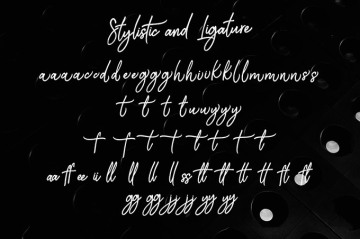 Stylistic and Ligature
aaaaccddeegghhiikkllmmnnss
t t t t uuyyy
f f t t t t t t
aa ff ee ii ll ll ll ll ss tt tt tt tt ft ft
gg gg jj jj yy yy